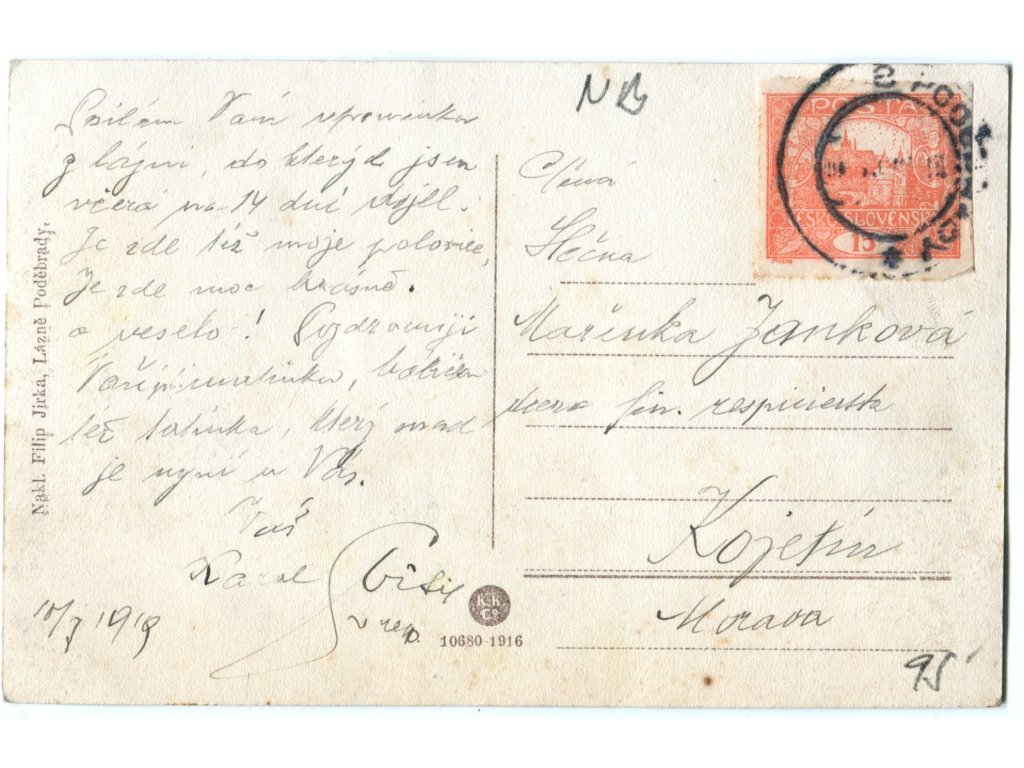 Posílám Vám vpomínku
z lázní, do kterých jsem
včera na 14 dní vyjel.
Je zde též moje polovice,
Je zde moc krásně.
a veselo! Pozdravuji
Vaši maminku, babičku
též tatínka, který snad
je nyní u Vás.
Váš
Karel
10/7 1919
Nakl. Filip Jirka, Lázně Poděbrady.
K.K. Co
10680-1916
NB
POŠTA
ČESKOSLOVENSKÁ
15
Ctěná
Slečna
Mařenka Janková
dcera fin. respicienta
Kojetín
Morava
95